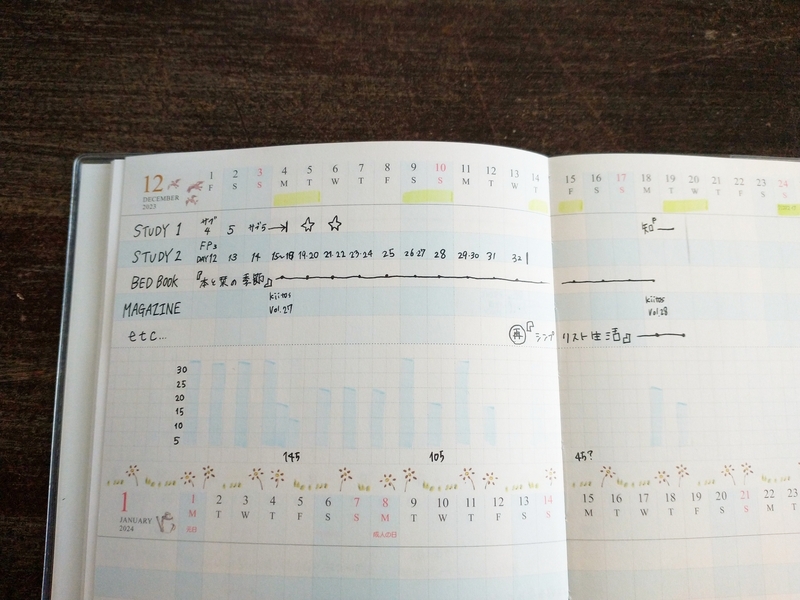 12 1 2 3 4 5 6 7 8 9 10 11 12 13 14 15 16 17 18 19 20 21 22 23 24
DECEMBER 2023 F S S M T W T F S S M T W T F S S M T W T F S S
STUDY 1 サブ4 5 サブ5 → ☆ ☆ 知P
STUDY 2 FP3 DAY12 13 14 15~18 19·20 21·22 23·24 25 26·27 28 29·30 31 32
BED BOOK 『本と栞の季節』
MAGAZINE kiitos Vol.27 kiitos Vol.28
etc... 再『シンプリスト生活』
30
25
20
15
10
5
145 105 45?
1 1 2 3 4 5 6 7 8 9 10 11 12 13 14 15 16 17 18 19 20 21 22 23
JANUARY 2024 M T W T F S S M T W T F S S M T W T F S S M T
元日 成人の日